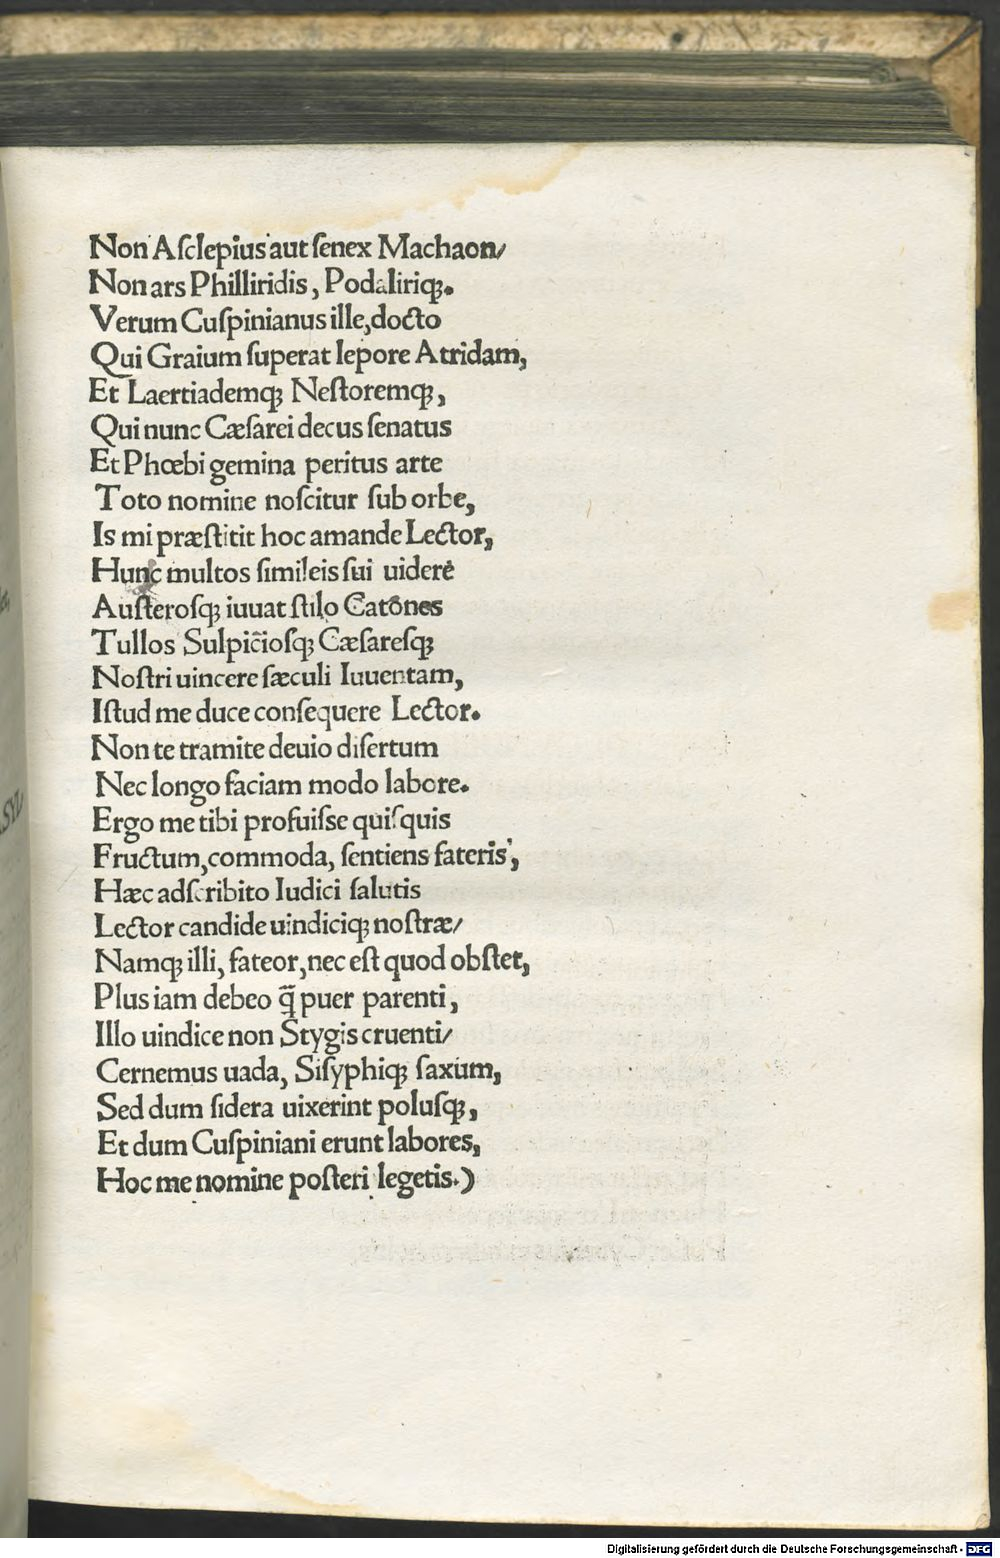 Non Aſclepius aut ſenex Machaon/
Non ars Philliridis, Podaliriqꝫ.
Verum Cuſpinianus ille, docto
Qui Graium ſuperat lepore Atridam,
Et Laertiademqꝫ Neſtoremqꝫ,
Qui nunc Cæſarei decus ſenatus
Et Phœbi gemina peritus arte
Toto nomine noſcitur ſub orbe,
Is mi præſtitit hoc amande Lector,
Hunc multos ſimileis ſui uidere
Auſteroſqꝫ iuuat ſtilo Catones
Tullos Sulpicioſqꝫ Cæſareſqꝫ
Noſtri uincere ſæculi Iuuentam,
Iſtud me duce conſequere Lector.
Non te tramite deuio diſertum
Nec longo faciam modo labore.
Ergo me tibi profuiſse quiſquis
Fructum, commoda, ſentiens fateris,
Hæc adſcribito Iudici ſalutis
Lector candide uindiciqꝫ noſtræ/
Namqꝫ illi, fateor, nec eſt quod obſtet,
Plus iam debeo q̃ puer parenti,
Illo uindice non Stygis cruenti/
Cernemus uada, Siſyphiqꝫ ſaxum,
Sed dum ſidera uixerint poluſqꝫ,
Et dum Cuſpiniani erunt labores,
Hoc me nomine poſteri legetis.)
Digitalisierung gefördert durch die Deutsche Forschungsgemeinschaft - DFG